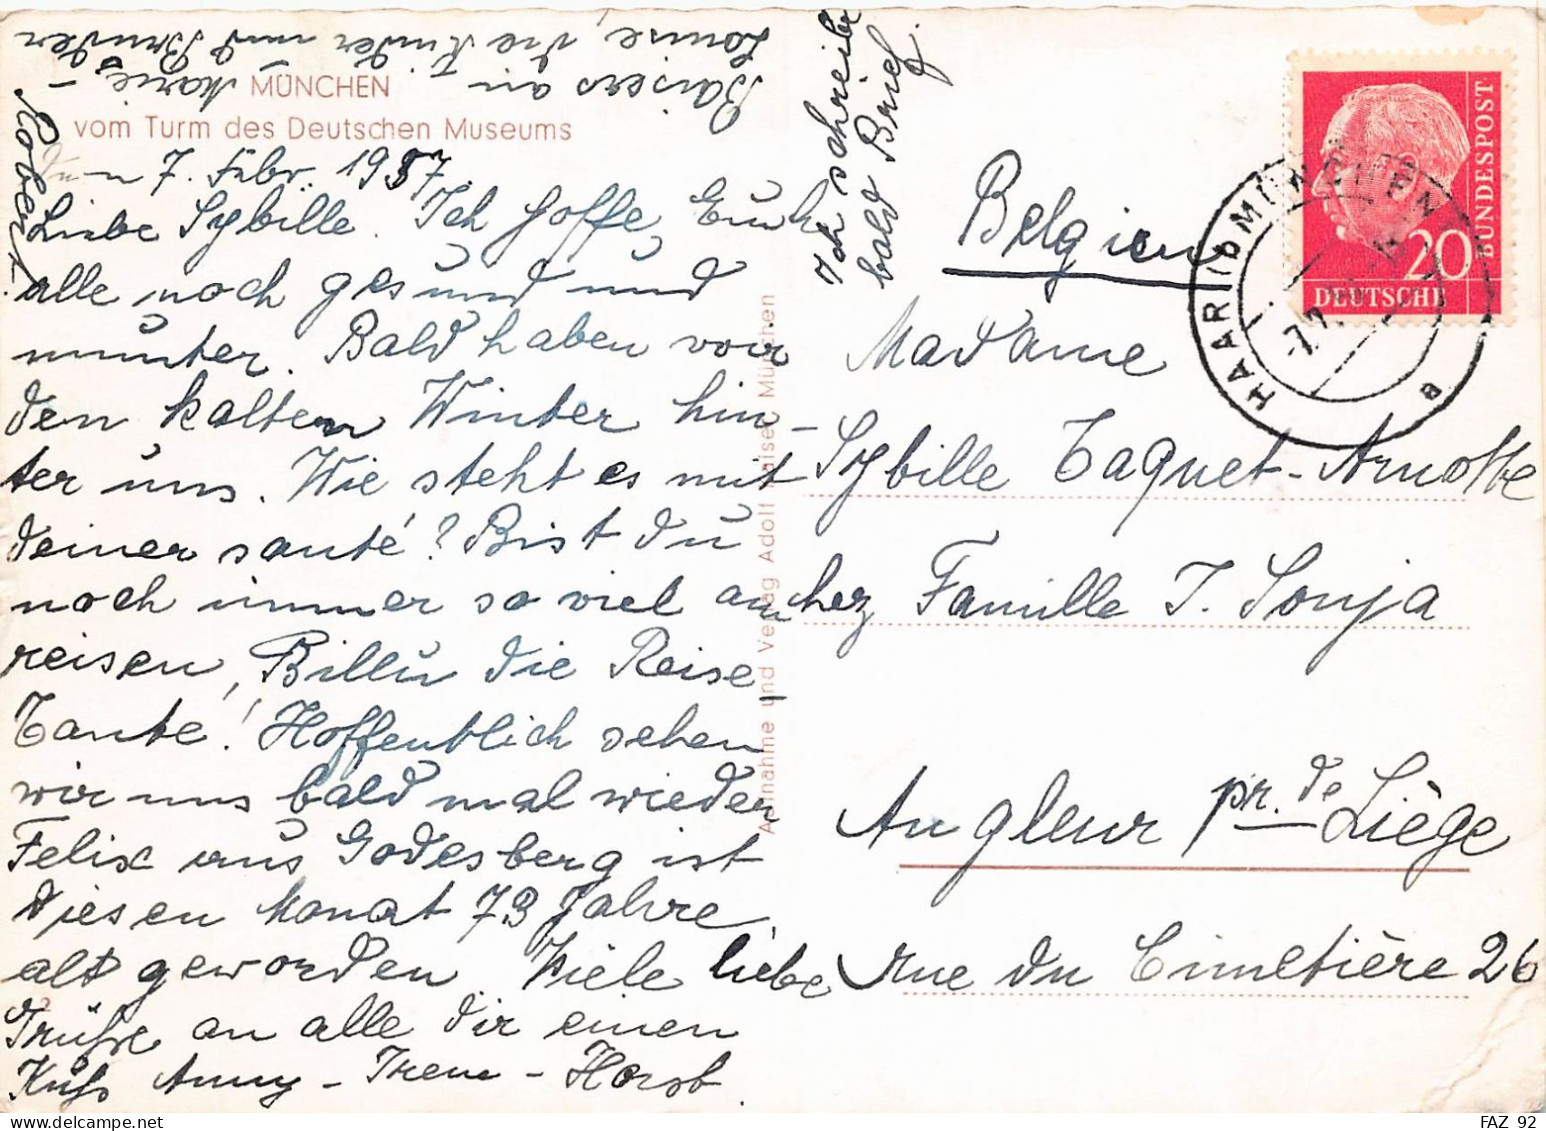 Baisers an - Marie -
Louise, die Kinder und Bruder
Robert.
MÜNCHEN
vom Turm des Deutschen Museums
7. Febr. 1957.
Liebe Sybille. Ich hoffe, Euch
alle noch gesund und
munter. Bald haben wir
den kalten Winter hin-
ter uns. Wie steht es mit
deiner santé? Bist du
noch immer so viel am
reisen, Billu die Reise
Tante! Hoffentlich sehen
wir uns bald mal wieder
Felix aus Godesberg ist
diesen Monat 73 Jahre
alt geworden. Viele liebe
Grüße an alle dir einen
Kuß Anny - Irene - Horst.
Ich schreibe
bald Brief.
Aufnahme und Verlag Adolf Kaiser München
Belgien
Madame
Sybille Taquet-Arnotte
chez Famille J. Sonja
Angleur pr. de Liège
rue du Cimetière 26
HAAR (b MÜNCHEN)
a
DEUTSCHE
BUNDESPOST
20
FAZ 92